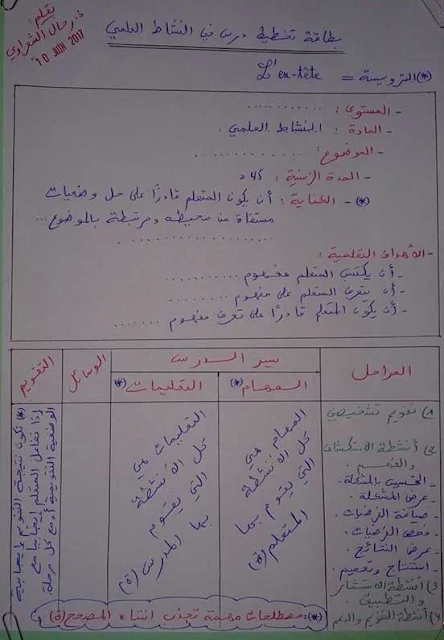 بقلم:
ذ. رحال الشعراوي
10 JUIN 2017
بطاقة تخطيط درس في النشاط العلمي
(*) الترويسة = L'en-tête
- المستوى : ..........
- المادة : النشاط العلمي.
- الموضوع : ..........
- المدة الزمنية : 45 د
(*) - الكفاية : أن يكون المتعلم قادرًا على حل وضعيات
مستقاة من محيطه ومرتبطة بالموضوع ...
..........
- الأهداف التعلمية :
- أن يكتسب المتعلم مفهوم ..........
- أن يتعرف المتعلم على مفهوم ..........
- أن يكون المتعلم قادرًا على تعرف مفهوم ..........
المراحل
سير الدرس
المهام (*)
التعليمات (*)
الوسائل
التقويم
1) تقويم تشخيصي
2) أنشطة الاستكشاف
والفهم
- التحسيس بالمشكلة
- عرض المشكلة.
- صياغة الفرضيات
- فحص الفرضيات.
- عرض النتائج.
- استنتاج وتعميم.
3) أنشطة الاستثمار
والتطبيق
4) أنشطة التقويم والدعم
المهام هي
كل الأنشطة
التي يقوم بها
المتعلم (ة)
التعليمات هي
كل الأنشطة
التي يقوم
بها المدرس (ة)
(*) تكون نتيجة التقويم إيجابية
إذا تفاعل المتعلم إيجابيا مع
الوضعية التقويمية أو مع كل مرحلة
(*): مصطلحات مهمة تجذب انتباه المصحح (ة)